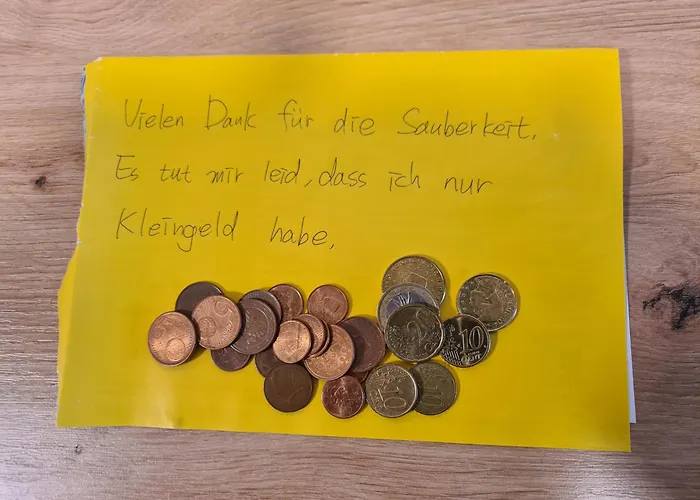 Vielen Dank für die Sauberkeit.
Es tut mir leid, dass ich nur
Kleingeld habe.
10